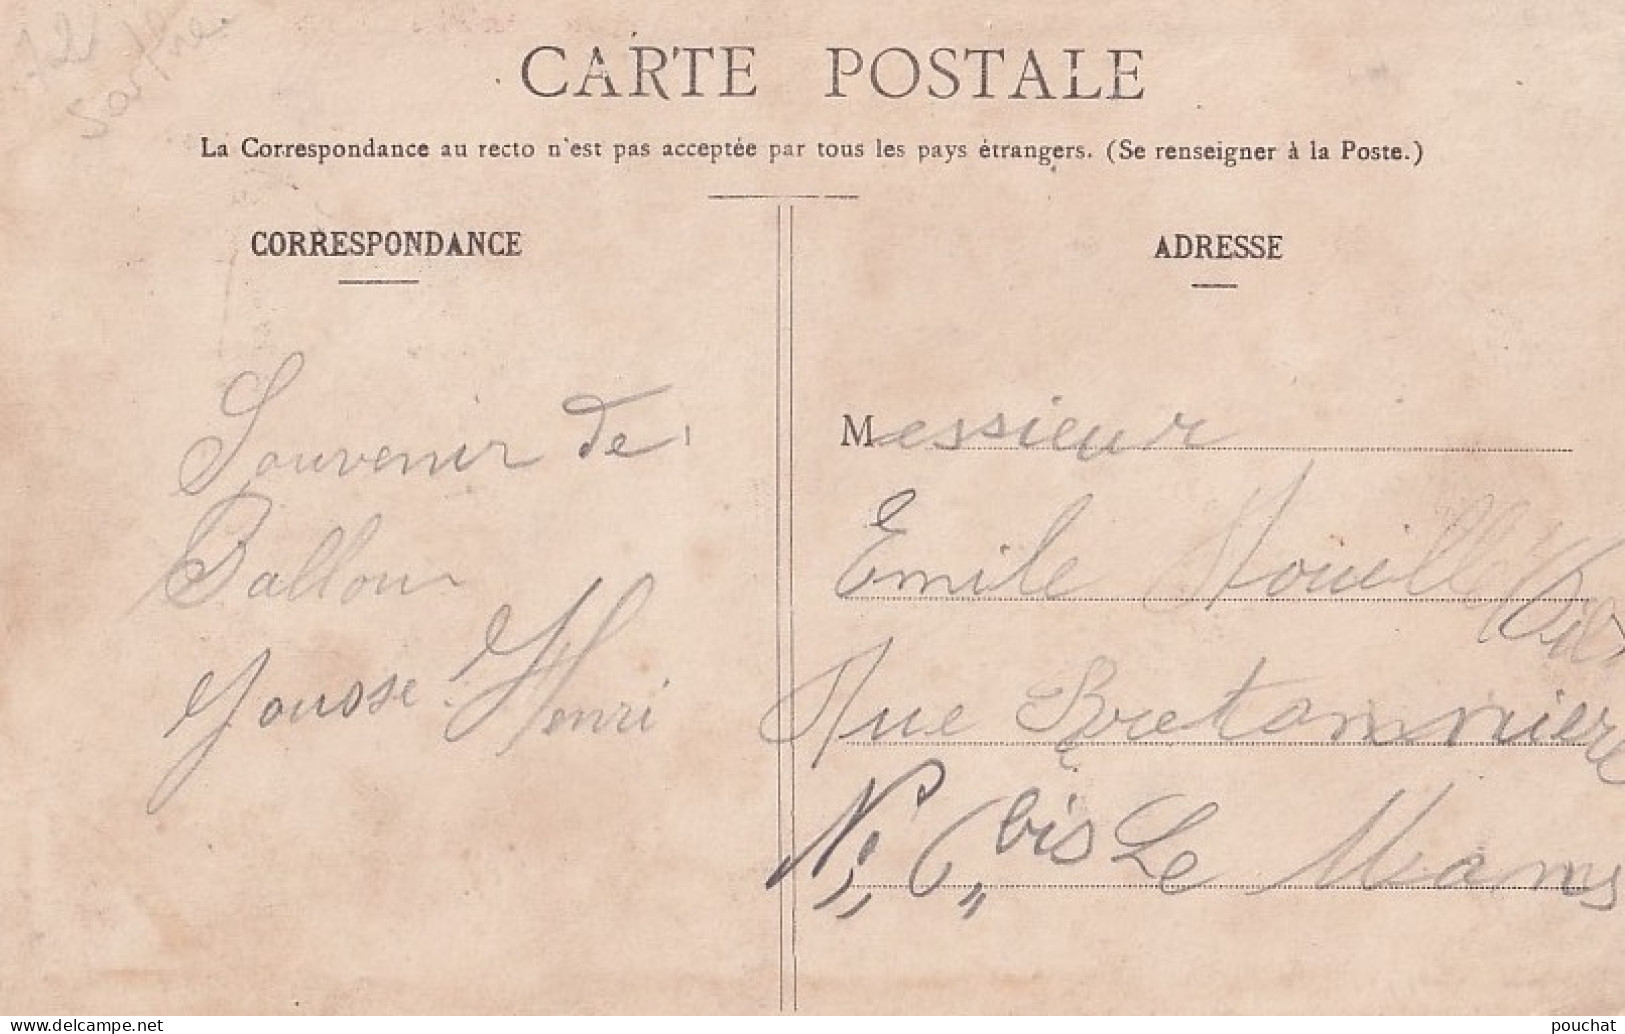 72
Sarthe.
CARTE POSTALE
La Correspondance au recto n'est pas acceptée par tous les pays étrangers. (Se renseigner à la Poste.)
CORRESPONDANCE
Souvenir de
Ballon
Yousse Henri
ADRESSE
Messieur
Emile
Rue Bretonnniere
N° 6 bis Le Mans
www.delcampe.net
pouchat